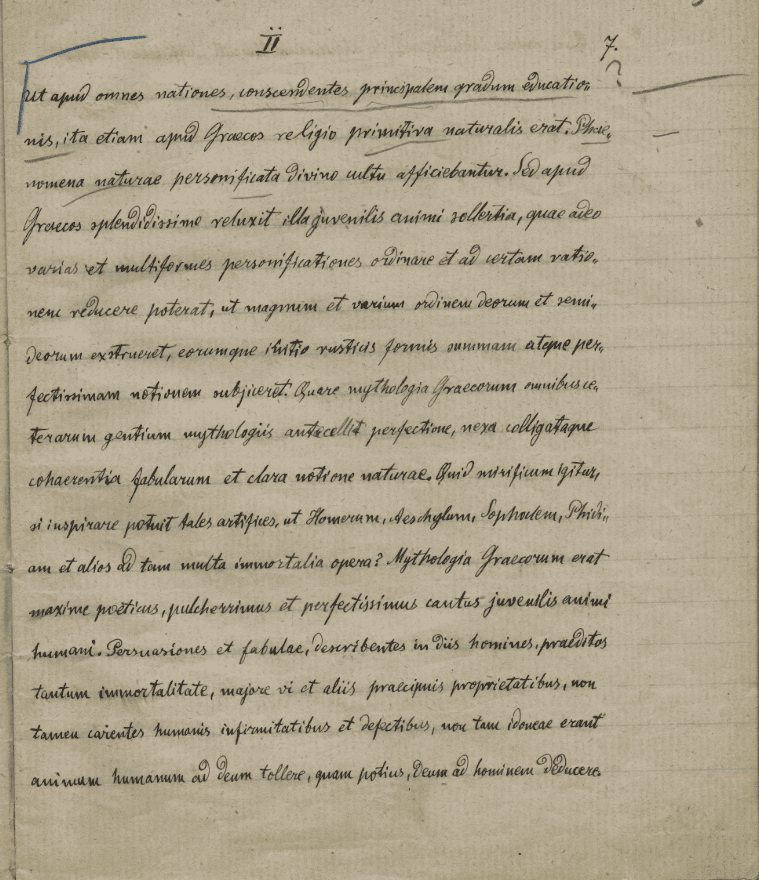 II
7.
?
Ut apud omnes nationes, conscendentes principalem gradum educatio-
nis, ita etiam apud Graecos religio primitiva naturalis erat. Phae-
nomena naturae personificata divino cultu afficiebantur. Sed apud
Graecos splendidissime reluxit illa juvenilis animi sollertia, quae adeo
varias et multiformes personificationes ordinare et ad certam ratio-
nem reducere poterat, ut magnum et varium ordinem deorum et semi-
deorum exstrueret, eorumque initio rusticis formis summam atque per-
fectissimam notionem subjiceret. Quare mythologia Graecorum omnibus ce-
terarum gentium mythologiis antecellit perfectione, nexa colligataque
cohaerentia fabularum et clara notione naturae. Quid mirificum igitur,
si inspirare potuit tales artifices, ut Homerum, Aeschylum, Sophoclem, Phidi-
am et alios ad tam multa immortalia opera? Mythologia Graecorum erat
maxime poeticus, pulcherrimus et perfectissimus cantus juvenilis animi
humani. Persuasiones et fabulae, describentes in diis homines, praeditos
tantum immortalitate, majore vi et aliis praecipuis proprietatibus, non
tamen carentes humanis infirmitatibus et defectibus, non tam idoneae erant
animum humanum ad deum tollere, quam potius, Deum ad hominem deducere